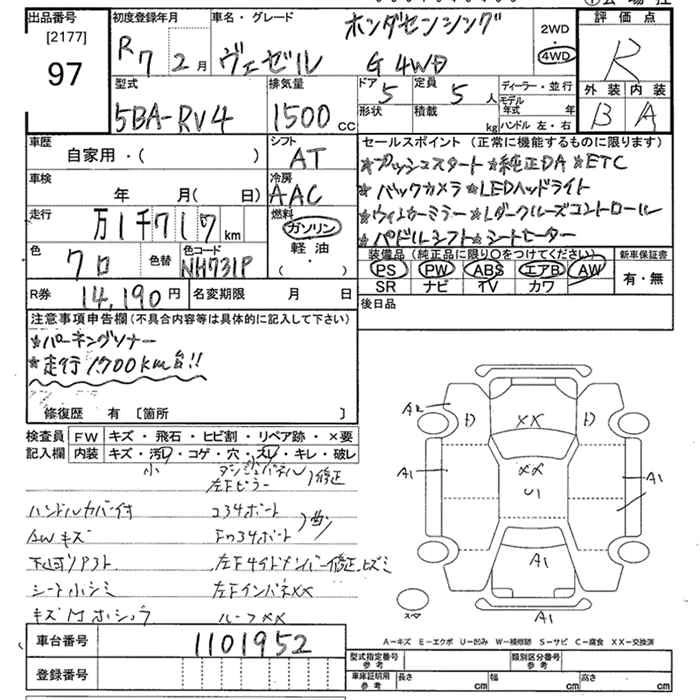 出品番号
[2177]
97
初度登録年月
R7 2月
車名・グレード
ホンダセンシング
ヴェゼル G 4WD
2WD
・
4WD
評価点
R
外装 内装
B A
型式
5BA-RV4
排気量
1500 cc
ドア 5
形状
定員 5 人
積載 kg
ディーラー・並行
モデル年式 年
ハンドル 左・右
車歴
自家用・( )
シフト
AT
車検
年 月( 日)
冷房
AAC
走行
万1千717km
燃料
ガソリン
軽油
( ・ )
色
クロ
色替
色コード
NH731P
R券
14,190円
名変期限 月 日
セールスポイント(正常に機能するものに限ります)
★プッシュスタート★純正DA★ETC
★バックカメラ★LEDヘッドライト
★ウィンカーミラー★レダークルーズコントロール
★パドルシフト★シートヒーター
装備品(純正品に限り○をつけてください)
PS PW ABS エアB AW
SR ナビ TV カワ
新車保証書
有・無
後日品
注意事項申告欄(不具合内容等は具体的に記入して下さい)
★パーキングソナー
★走行1700km台!!
修復歴 有〔箇所 〕
検査員
記入欄
FW キズ・飛石・ヒビ割・リペア跡・×要
内装 キズ・汚レ・コゲ・穴・スレ・キレ・破レ
小
左Fピラー 修正
ハンドルカバー付
コ34ボート
曲
AWキズ
Fコ34ボート
下廻リ
左Fサイドメンバー修正、ヒズミ
シート小シミ
左FインパネXX
ルーフXX
A2
D
XX
D
A1
XX
U1
A1
A1
スペア
A1
A-キズ E-エクボ U-凹み W-補修跡 S-サビ C-腐食 XX-交換済
車台番号
1101952
登録番号
型式指定番号
参考
類別区分番号
参考
車庫証明用
参考
長さ cm
幅 cm
高さ cm